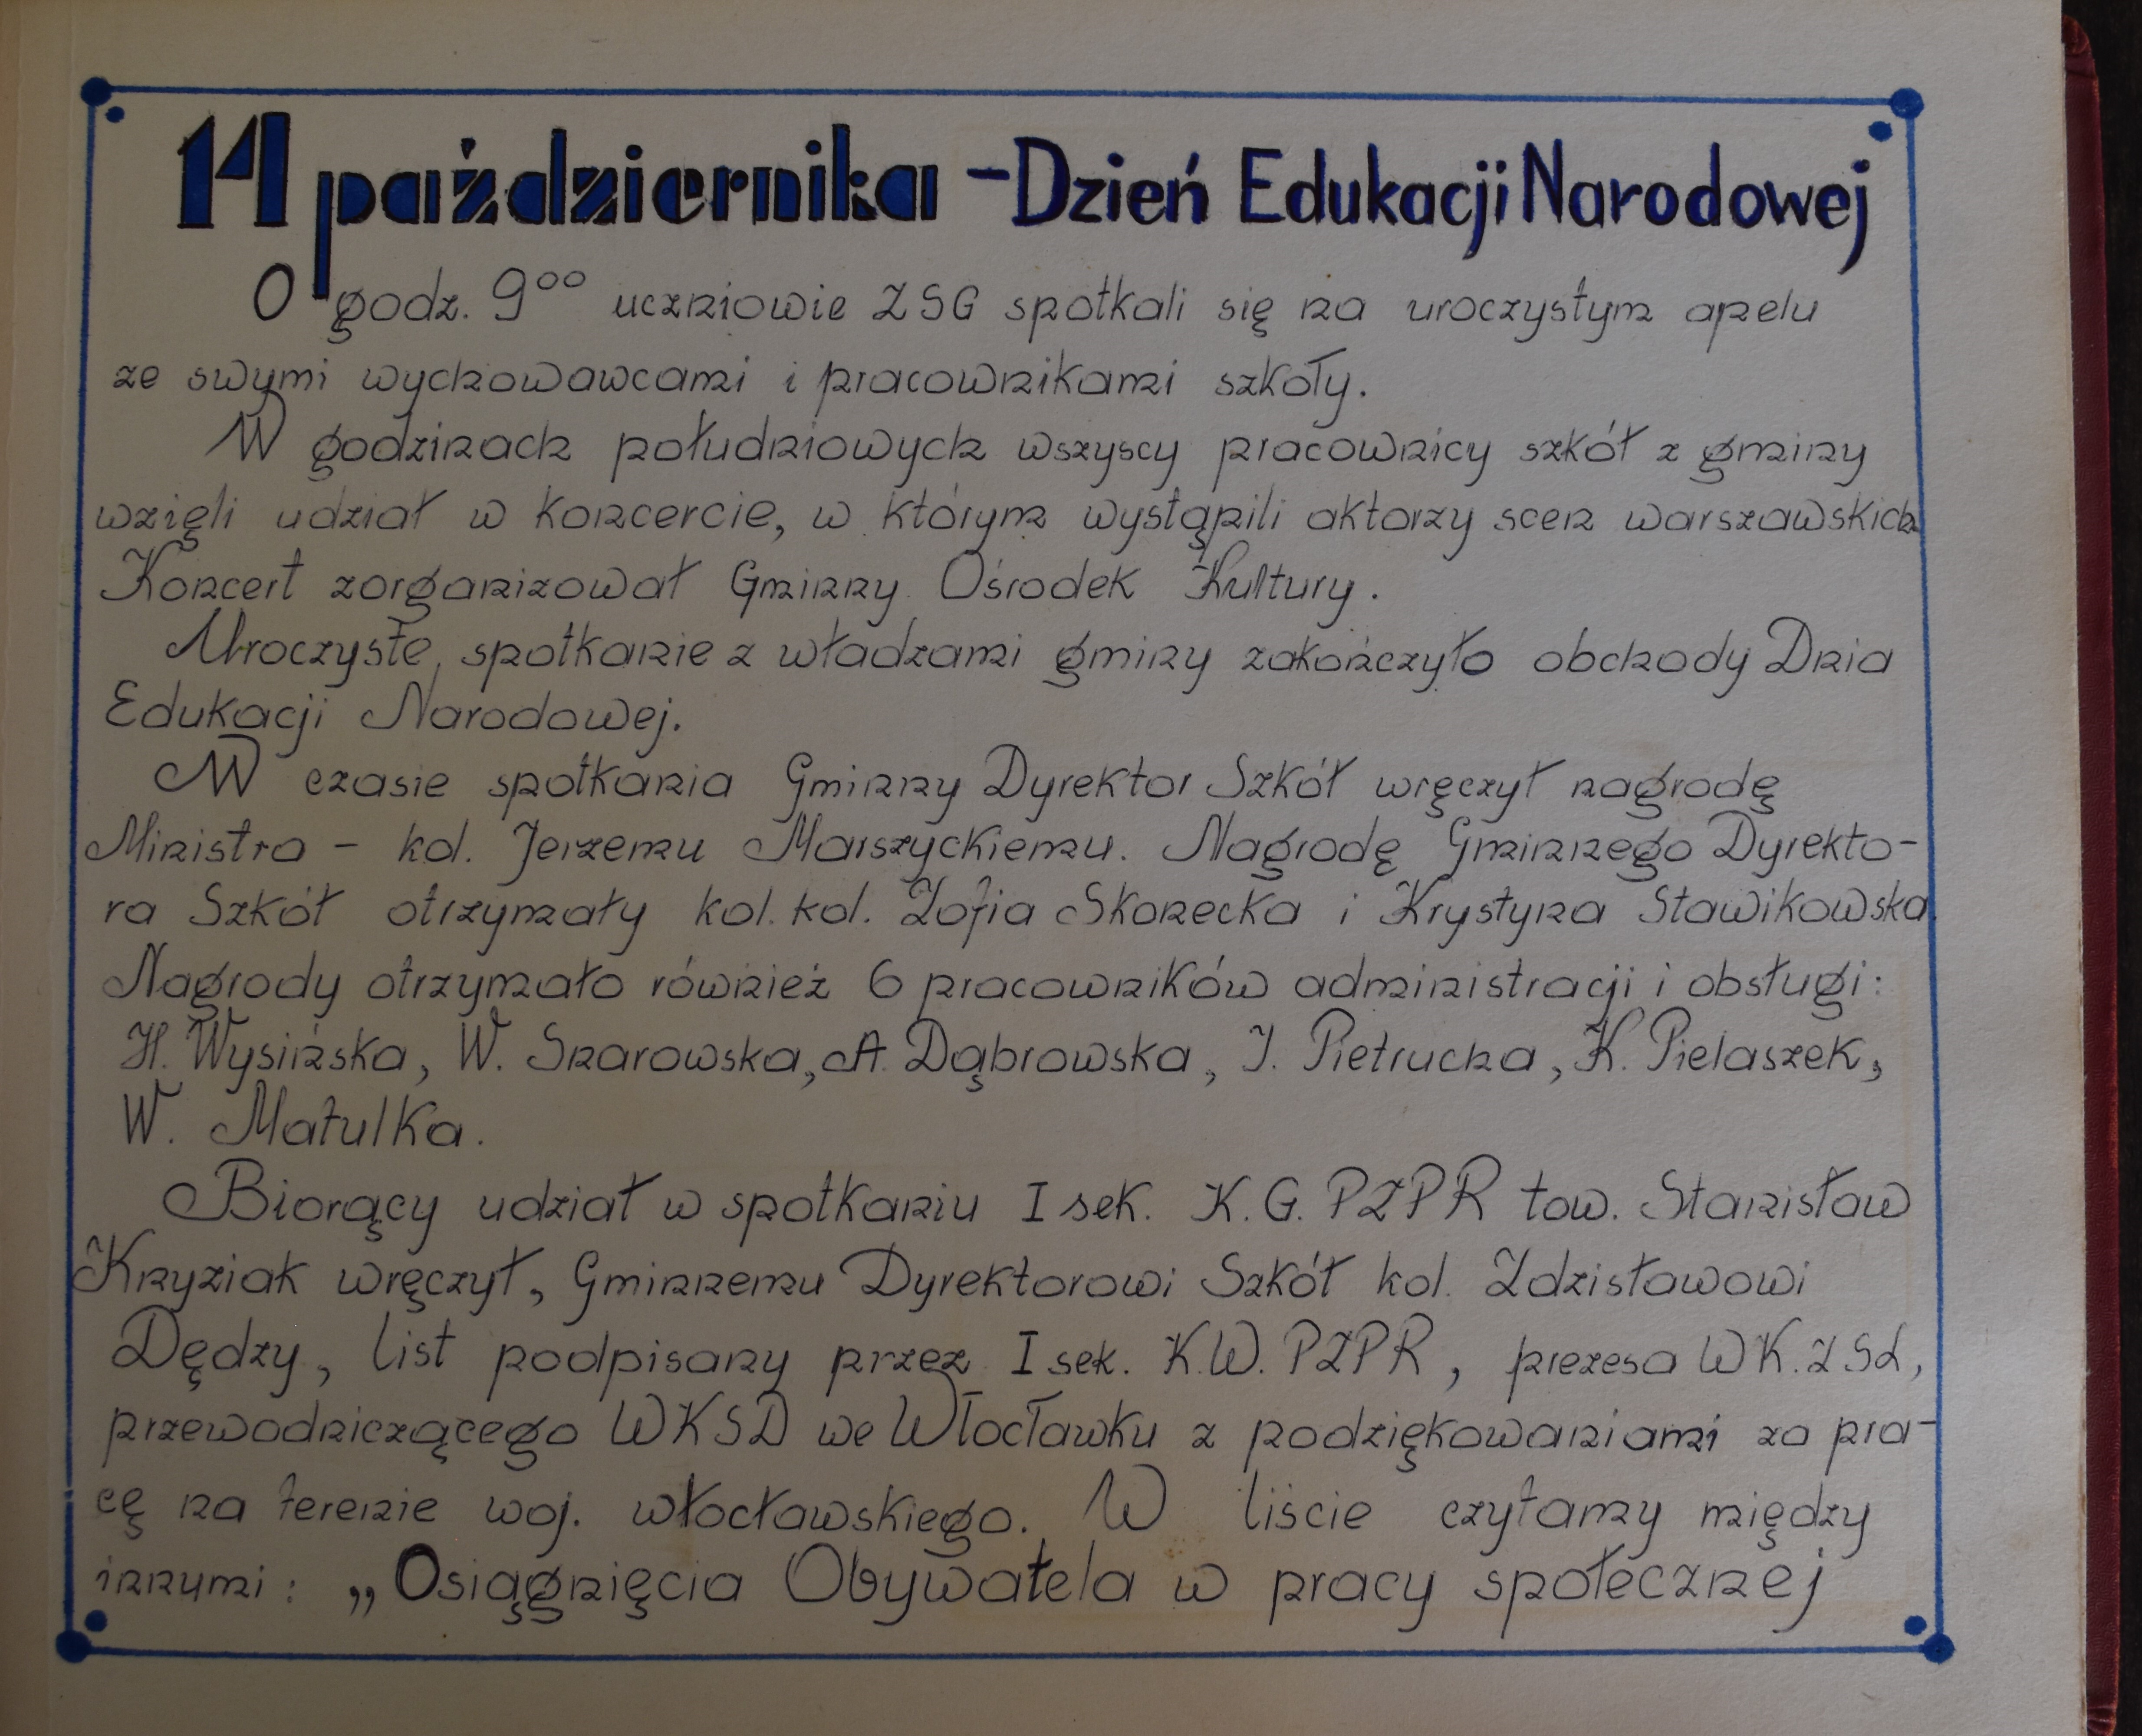 14 października - Dzień Edukacji Narodowej
O godz. 9⁰⁰ uczniowie ZSG spotkali się na uroczystym apelu
ze swymi wychowawcami i pracownikami szkoły.
W godzinach południowych wszyscy pracownicy szkół z gminy
wzięli udział w koncercie, w którym wystąpili aktorzy scen warszawskich
Koncert zorganizował Gminny Ośrodek Kultury.
Uroczyste spotkanie z władzami gminy zakończyło obchody Dnia
Edukacji Narodowej.
W czasie spotkania Gminny Dyrektor Szkół wręczył nagrodę
Ministra - kol. Jerzemu Marszyckiemu. Nagrodę Gminnego Dyrekto-
ra Szkół otrzymały kol. kol. Zofia Skonecka i Krystyna Stawikowska
Nagrody otrzymało również 6 pracowników administracji i obsługi:
H. Wysińska, W. Snarowska, A. Dąbrowska, J. Pietrucha, K. Pielaszek,
W. Matulka.
Biorący udział w spotkaniu I sek. K.G. PZPR tow. Stanisław
Kryziak wręczył, Gminnemu Dyrektorowi Szkół kol. Zdzisławowi
Dędzy, list podpisany przez I sek. K.W. PZPR, prezesa WK.ZSL,
przewodniczącego WKSD we Włocławku z podziękowaniami za pra-
cę na terenie woj. włocławskiego. W liście czytamy między
innymi: „Osiągnięcia Obywatela w pracy społecznej